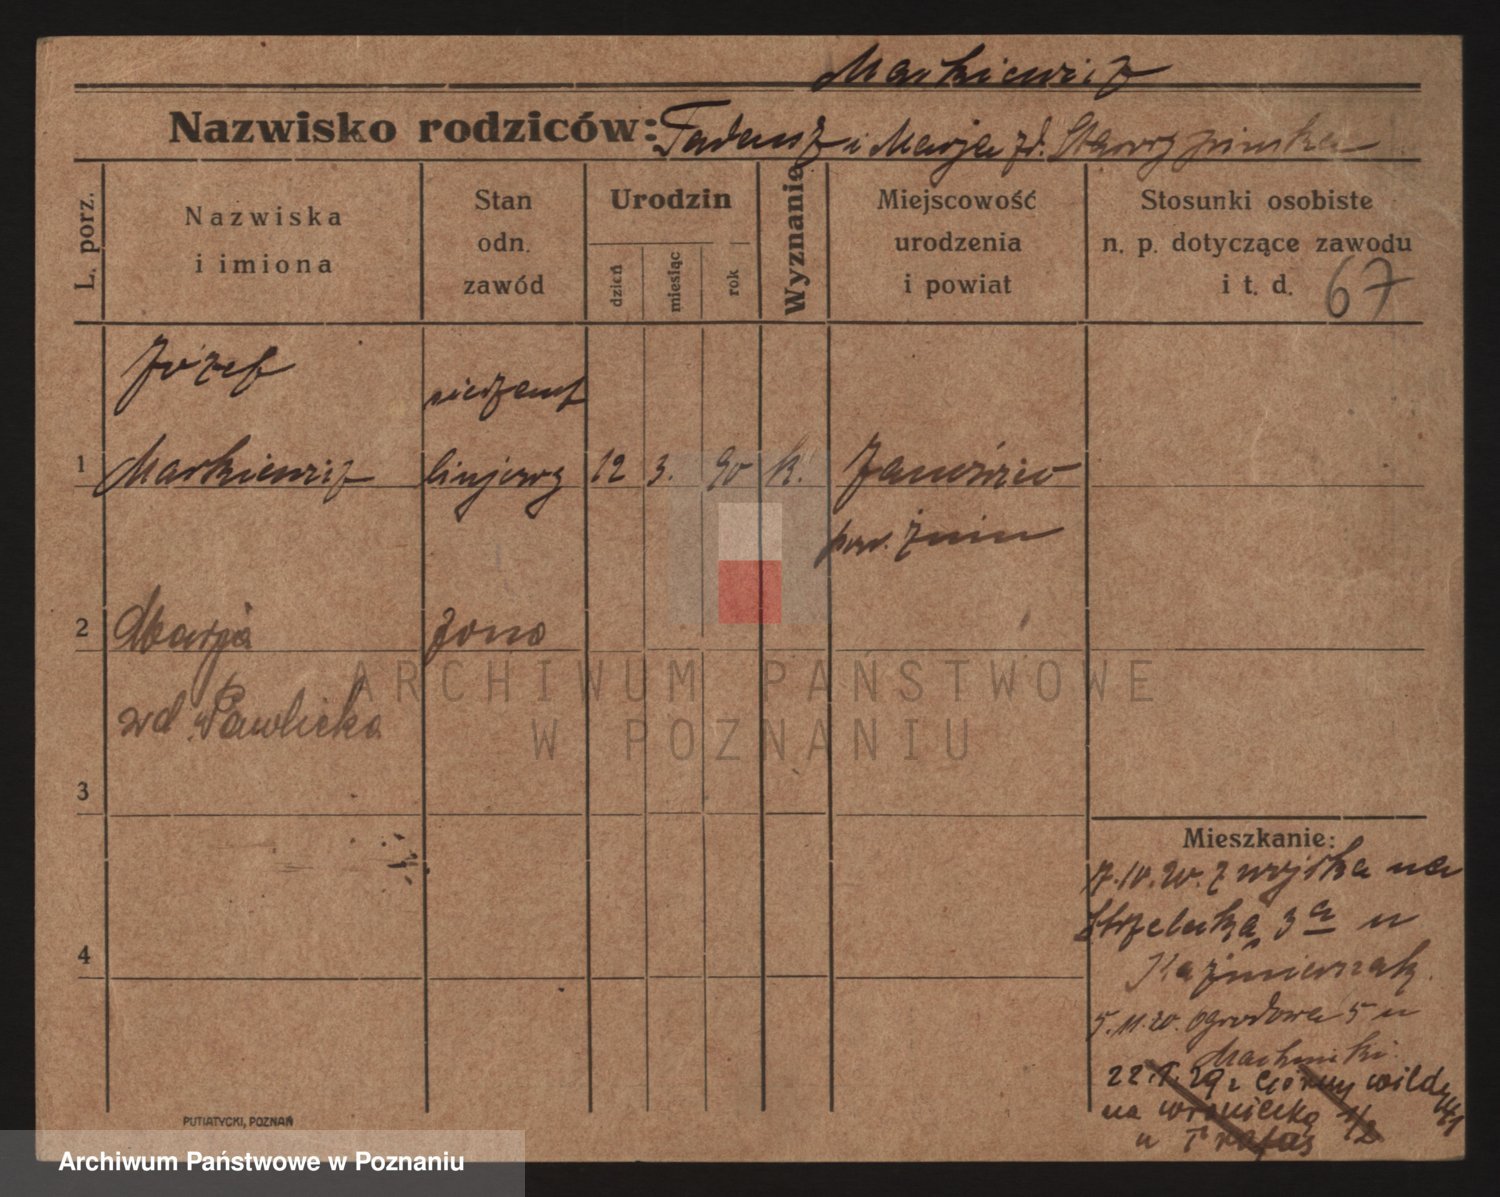 Markiewicz
Nazwisko rodziców: Tadeusz i Marja zd.
L. porz.
Nazwiska
i imiona
Stan
odn.
zawód
Urodzin
dzień
miesiąc
rok
Wyznanie
Miejscowość
urodzenia
i powiat
Stosunki osobiste
n. p. dotyczące zawodu
i t. d. 67
Józef
1 Markiewicz 12 3. 90 k. Janówiec
pow. Żnin
2 Marja żona
zd Pawlicka
3
4
Mieszkanie:
17.10.20. z wojska na
Strzelecką 3a u
Kaźmierczak.
5.11.20. ogrodowa 5 u
22. 29 z Górny wildy
na wroniecką 1/2
u
ARCHIWUM PAŃSTWOWE
W POZNANIU
PUTIATYCKI, POZNAŃ
Archiwum Państwowe w Poznaniu